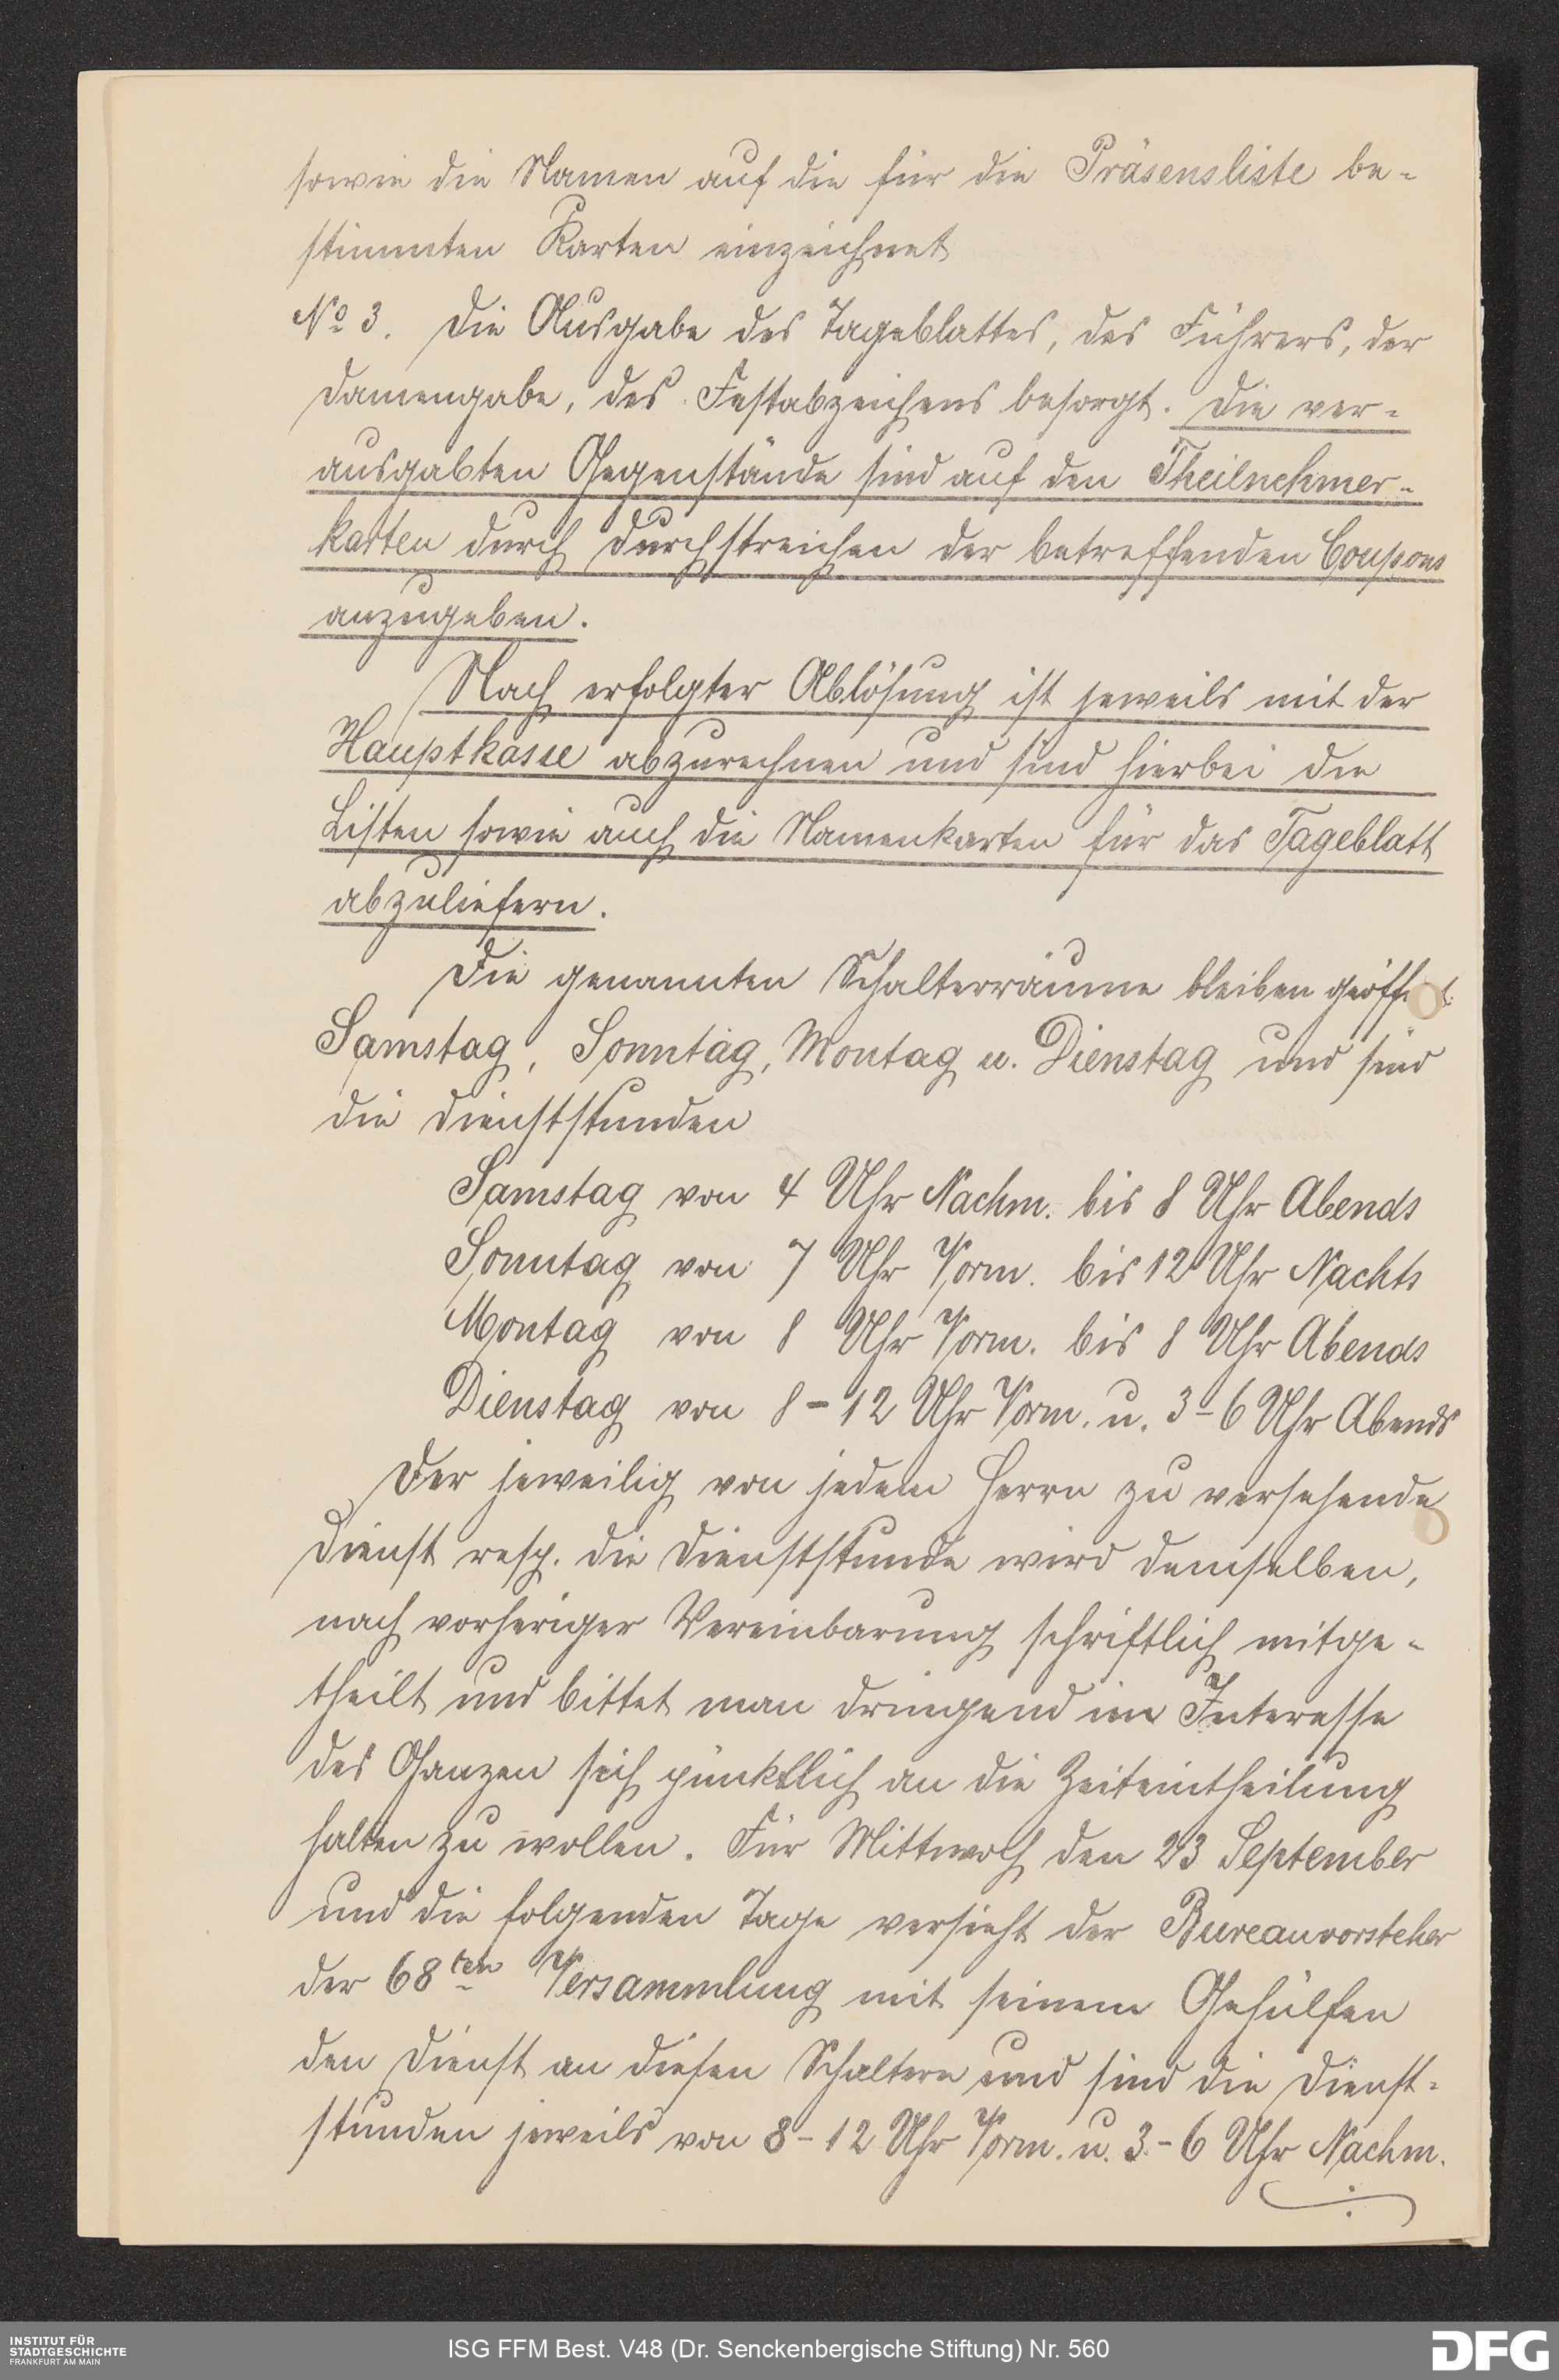 sowie die Namen auf die für die Präsensliste be-
stimmten Karten einzeichnet
No 3. Die Ausgabe des Tageblattes, des Führers, der
Damengabe, des Festabzeichens besorgt. Die ver-
ausgabten Gegenstände sind auf den Theilnehmer-
karten durch Durchstreichen der betreffenden Coupons
anzugeben.
Nach erfolgter Ablösung ist jeweils mit der
Hauptkasse abzurechnen und sind hierbei die
Listen sowie auch die Namenkarten für das Tageblatt
abzuliefern.
Die genannten Schalterräume bleiben geöffnet
Samstag, Sonntag, Montag u. Dienstag und sind
die Dienststunden
Samstag von 4 Uhr Nachm. bis 8 Uhr Abends
Sonntag von 7 Uhr Vorm. bis 12 Uhr Nachts
Montag von 8 Uhr Vorm. bis 8 Uhr Abends
Dienstag von 8-12 Uhr Vorm. u. 3-6 Uhr Abends
Der jeweilig von jedem Herrn zu versehende
Dienst resp. die Dienststunde wird demselben,
nach vorheriger Vereinbarung schriftlich mitge-
theilt und bittet man dringend im Interesse
des Ganzen sich pünktlich an die Zeiteintheilung
halten zu wollen. Für Mittwoch den 23 September
und die folgenden Tage versieht der Bureauvorsteher
der 68ten Versammlung mit seinem Gehülfen
den Dienst an diesen Schaltern und sind die Dienst-
stunden jeweils von 8-12 Uhr Vorm. u. 3-6 Uhr Nachm.
INSTITUT FÜR
STADTGESCHICHTE
FRANKFURT AM MAIN
ISG FFM Best. V48 (Dr. Senckenbergische Stiftung) Nr. 560
DFG